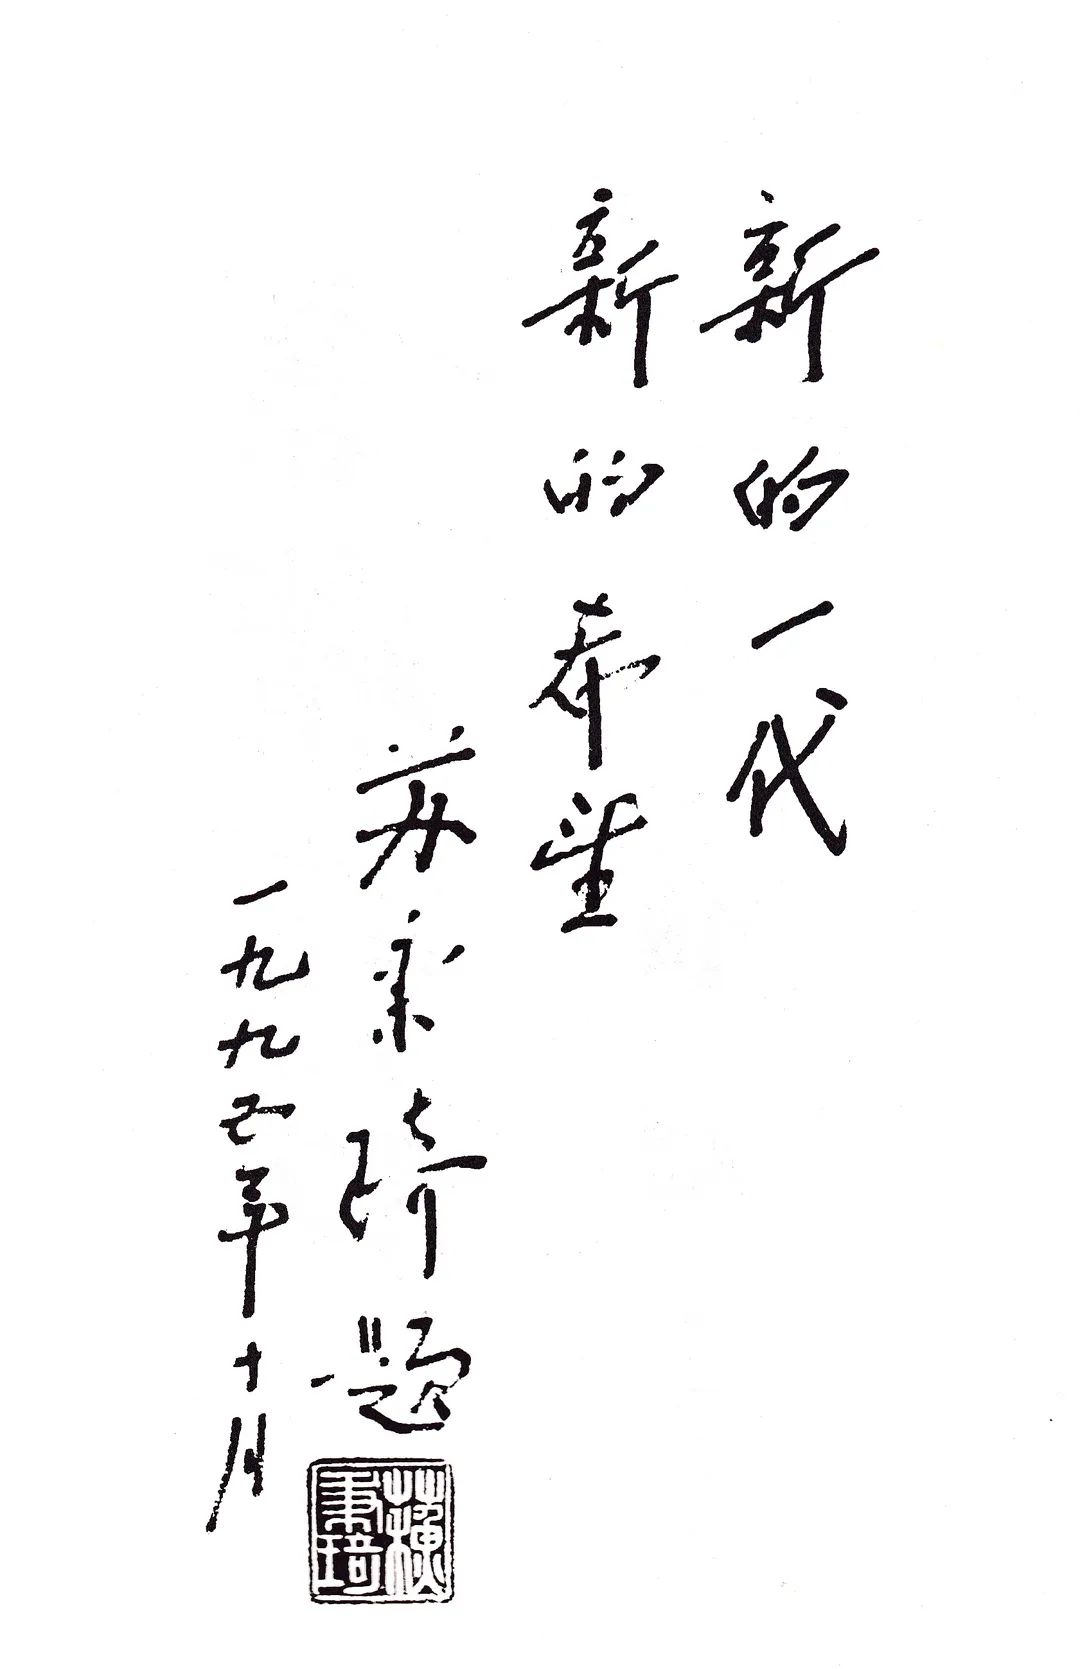 新的一代
新的希望
苏秉琦题
一九九五年十月
蘇秉琦